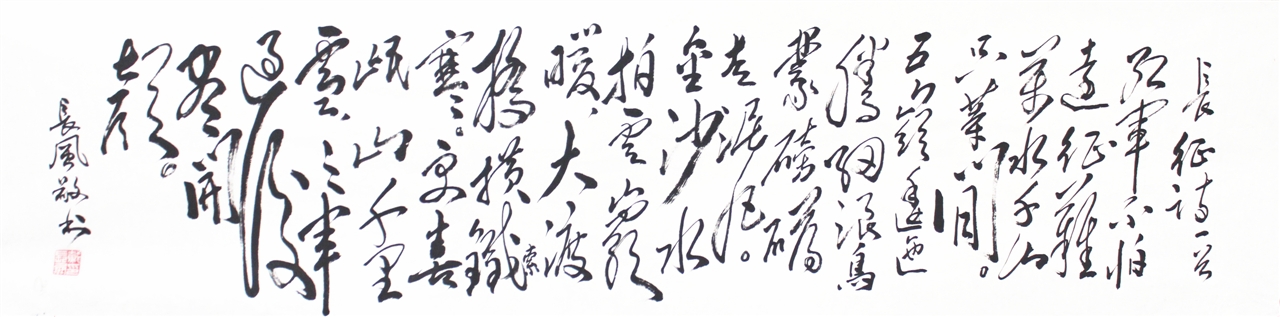 長征詩一首
紅軍不怕
遠征難
萬水千山
只等閒。
五嶺逶迤
騰細浪烏
蒙磅礴
走泥丸。
金沙水
拍雲崖
暖、大渡
橋橫鐵索
寒。更喜
岷山千里
雪、三軍
過後
盡開
顏。
長風敬书